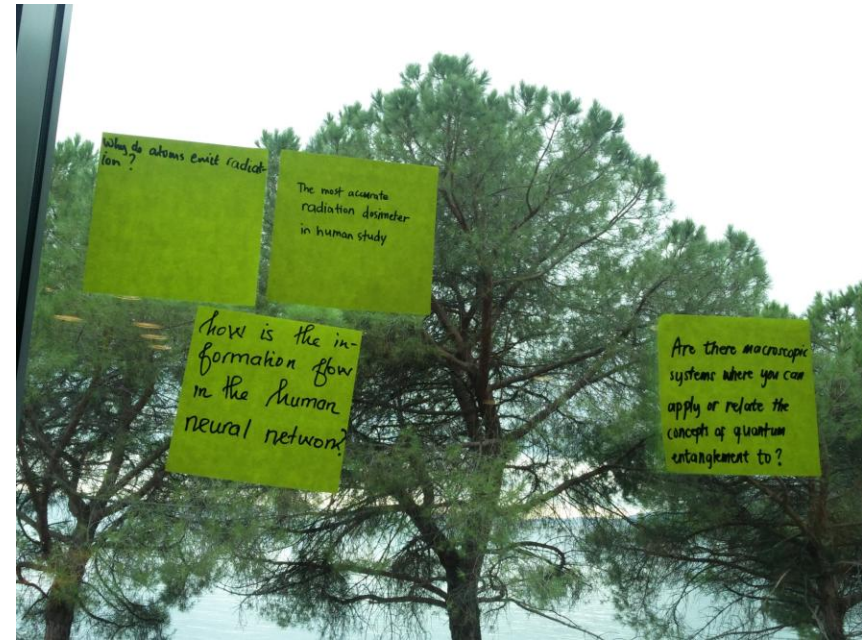 Why do atoms emit radiat-
ion?
The most accurate
radiation dosimeter
in human study
how is the in-
formation flow
in the human
neural network?
Are there macroscopic
systems where you can
apply or relate the
concept of quantum
entanglement to?